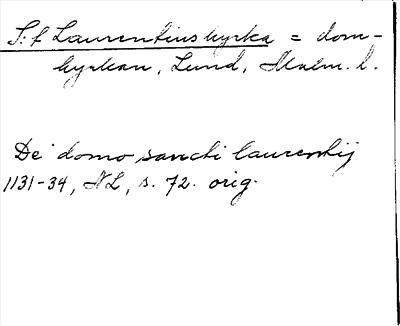 S:t Laurentius kyrka = dom-
kyrkan, Lund, Malm. l.
De domo sancti laurentij
1131-34, NL, s. 72. orig.